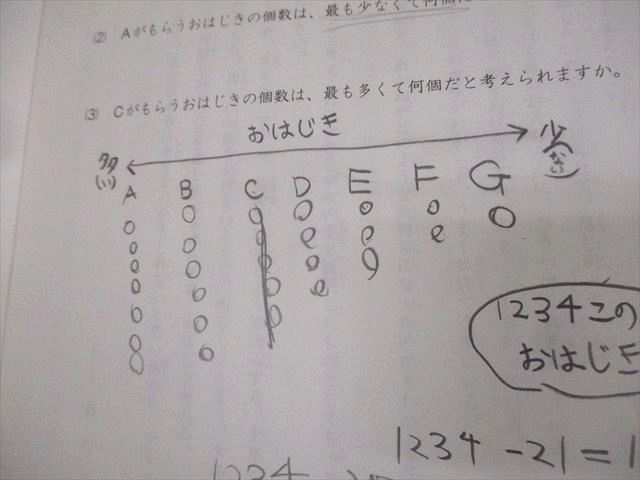 ② Aがもらうおはじきの個数は、最も少なくて何個だ
③ Cがもらうおはじきの個数は、最も多くて何個だと考えられますか。
おはじき
多(い) 少(ない)
A B C D E F G
1234この
おはじき
1234-21=1
1234